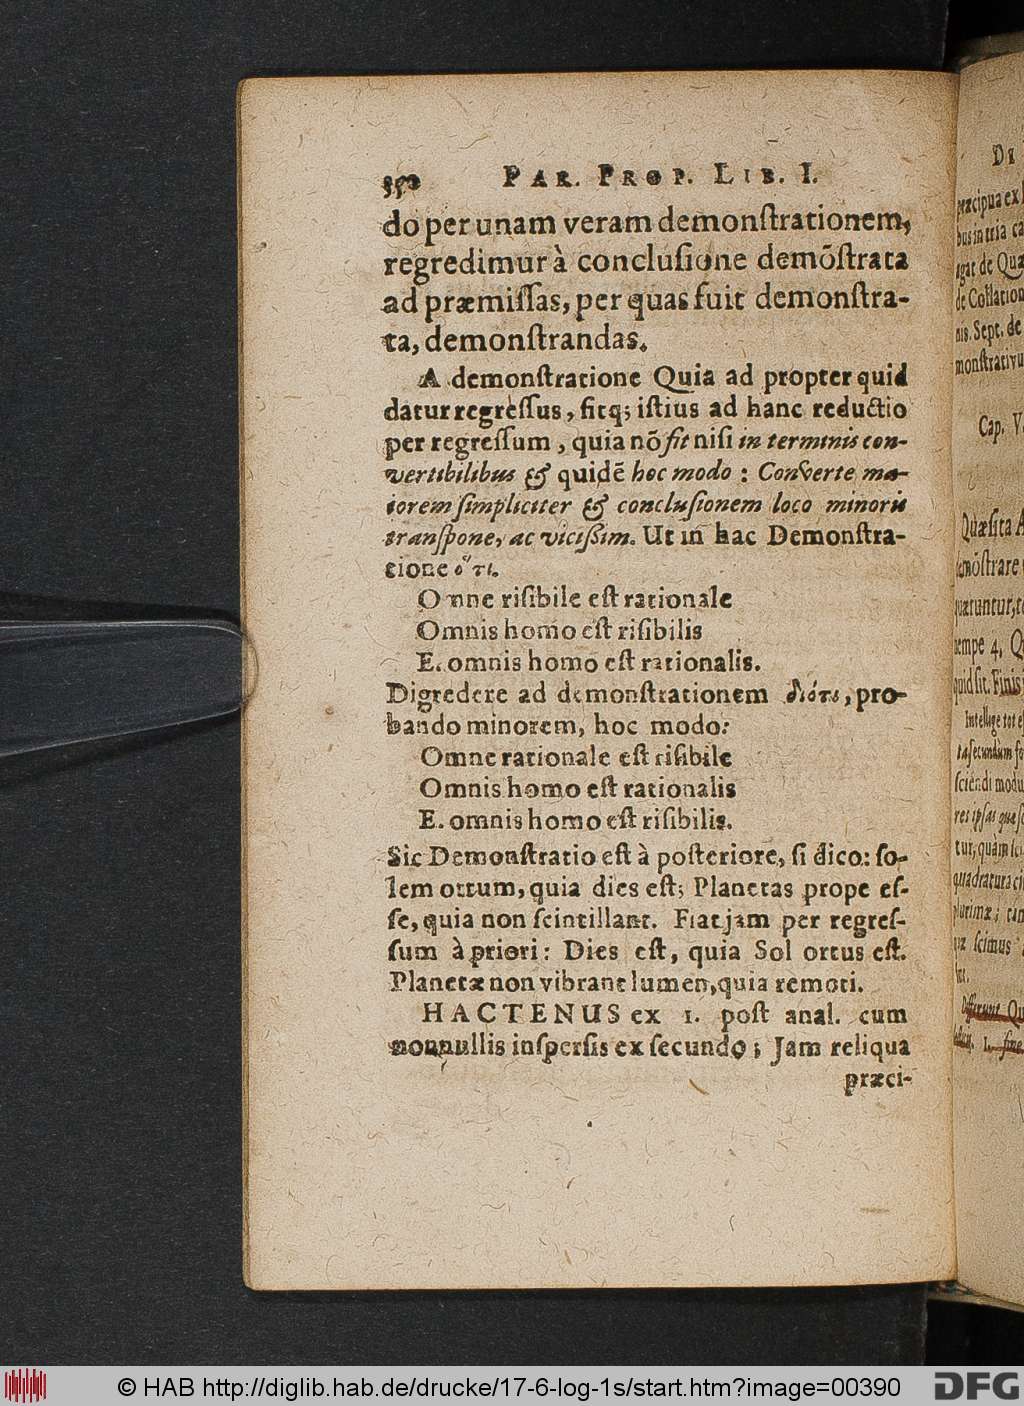 350 PAR. PROP. LIB. I.
do per unam veram demonſtrationem,
regredimur à concluſione demõſtrata
ad præmiſſas, per quas fuit demonſtra-
ta, demonſtrandas.
A demonſtratione Quia ad propter quid
datur regreſſus, fitq; iſtius ad hanc reductio
per regreſſum, quia nõ fit niſi in terminis con-
vertibilibus & quidẽ hoc modo: Converte ma-
iorem ſimpliciter & concluſionem loco minoris
tranſpone, ac viciſſim. Ut in hac Demonſtra-
tione ὅτι.
Omne riſibile eſt rationale
Omnis homo eſt riſibilis
E. omnis homo eſt rationalis.
Digredere ad demonſtrationem διότι, pro-
bando minorem, hoc modo:
Omne rationale eſt riſibile
Omnis homo eſt rationalis
E. omnis homo eſt riſibilis.
Sic Demonſtratio eſt à poſteriore, ſi dico: ſo-
lem ortum, quia dies eſt; Planetas prope eſ-
ſe, quia non ſcintillant. Fiat jam per regreſ-
ſum à priori: Dies eſt, quia Sol ortus eſt.
Planetæ non vibrant lumen, quia remoti.
HACTENUS ex 1. poſt anal. cum
nonnullis inſperſis ex ſecundo; Jam reliqua
præci-
DE
præcipua ex
bus in tria ca
agat de Quæ
de Collation
nis. Sept. de
monſtrativu
Cap. V.
Quæſita A
demõſtrare
quæruntur, to
nempe 4. Q
quid ſit. Finis
Intellige tot e
ta ſecundùm ſo
ſciendi modu
res ipſas quæ ſc
tur, quàm ſci
quadratura ci
plurimæ; tan
quæ ſcimus
Differunt Qu
1. fine
© HAB http://diglib.hab.de/drucke/17-6-log-1s/start.htm?image=00390
DFG